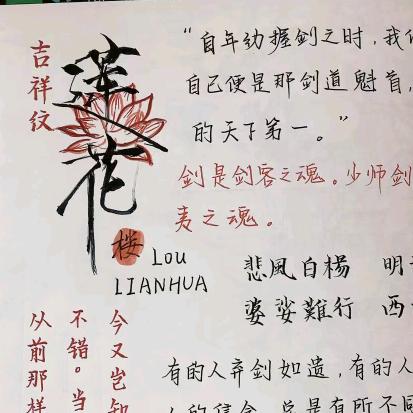 吉祥纹
莲花
楼
LOU
LIANHUA
“自年幼握剑之时，我
自己便是那剑道魁首，
的天下第一。”
剑是剑客之魂。少师剑
夷之魂。
悲風白楊 明
婆娑難行 西
今又岂知
不错。当
从前那样
有的人弃剑如遗，有的人
的信念，总是有所不同